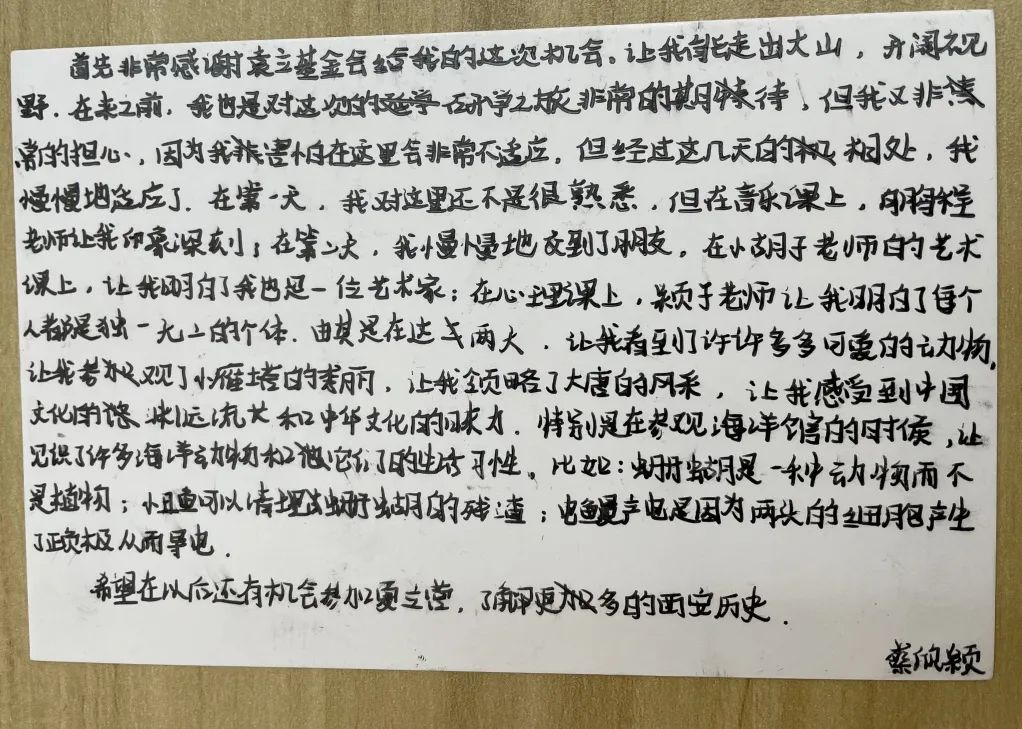 首先非常感谢袁立基金会给我的这次机会。让我能走出大山，开阔视
野．在来之前，我也是对这次的研学之旅非常的期待，但我又非
常的担心，因为我害怕在这里会非常不适应，但经过这几天的相处，我
慢慢地适应了．在第一天，我对这里还不是很熟悉，但在音乐课上，
老师让我印象深刻；在第二天，我慢慢地交到了朋友，在小胡子老师的艺术
课上，让我明白了我也是一位艺术家；在心理课上，颖子老师让我明白了每个
人都是独一无二的个体．由其是在这两天．让我看到了许许多多可爱的动物，
让我参观了小雁塔的美丽，让我领略了大唐的风采，让我感受到中国
文化的源远流长和中华文化的魅力．特别是在参观海洋馆的时候，让
见识了许多海洋动物和它们的生活习性。比如：珊瑚是一种动物而不
是植物；小丑鱼可以清理珊瑚的残渣；电鳗产电是因为两头的细胞产生
了正负极从而导电．
希望在以后还有机会参加夏立营，了解更多的西安历史．
蔡欣颖